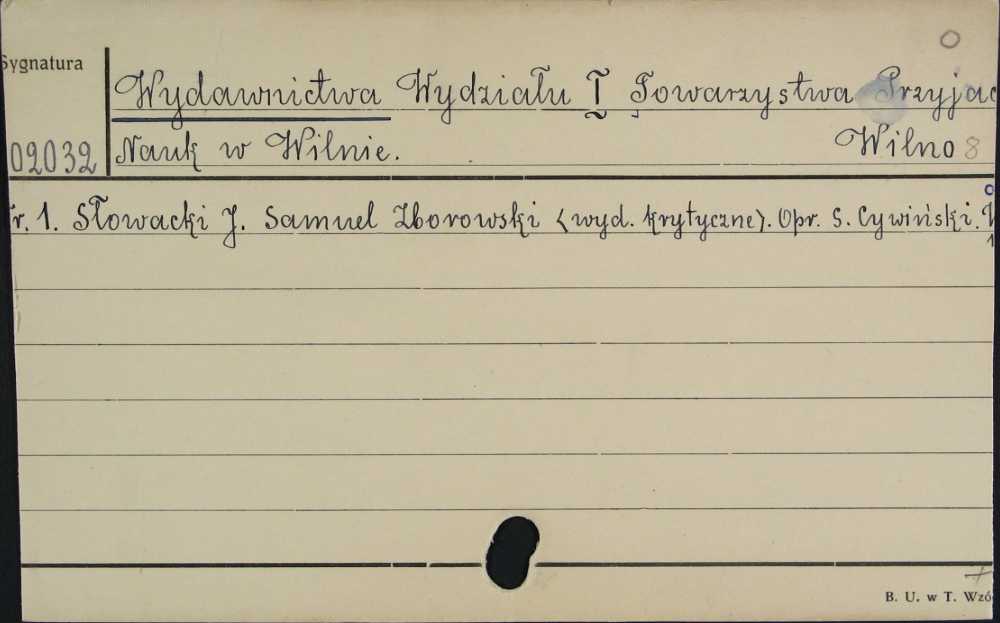 0
Sygnatura
Wydawnictwa Wydziału I Towarzystwa Przyjac
02032 Nauk w Wilnie. Wilno 8
r. 1. Słowacki J. Samuel Zborowski (wyd. krytyczne). Opr. S. Cywiński. W
1
B. U. w T. Wzó